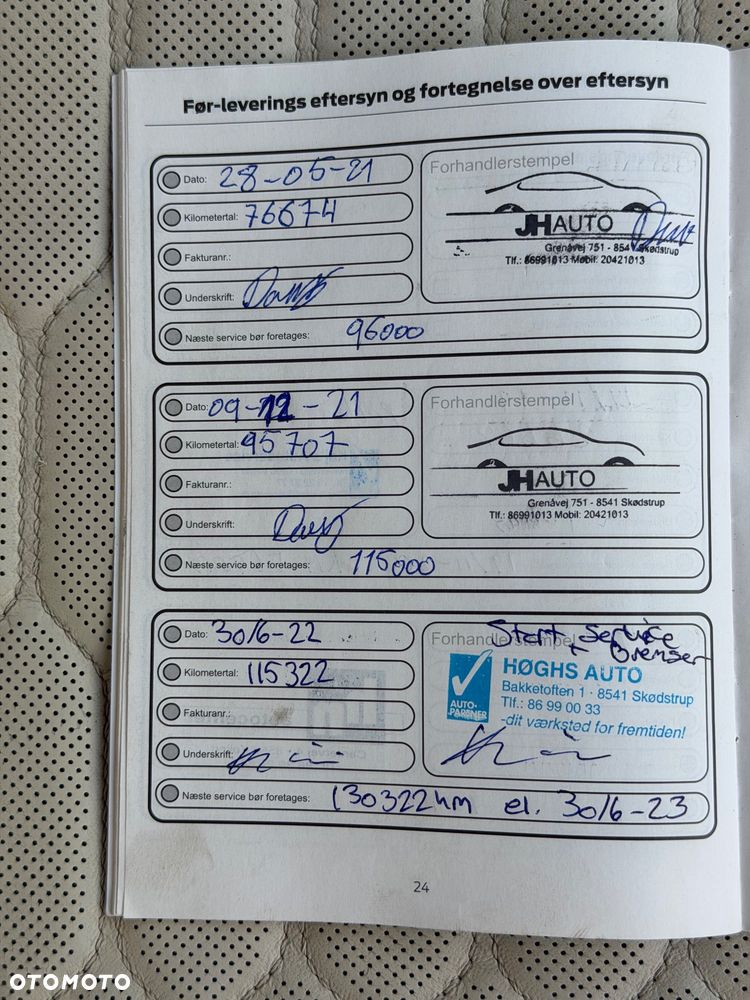 Før-leverings eftersyn og fortegnelse over eftersyn
Dato: 28-05-21
Kilometertal: 76674
Fakturanr.:
Underskrift:
Næste service bør foretages: 96000
Forhandlerstempel
JH AUTO
Grenåvej 751 - 8541 Skødstrup
Tlf.: 86991013 Mobil: 20421013
Dato: 09-12-21
Kilometertal: 95707
Fakturanr.:
Underskrift:
Næste service bør foretages: 115000
Forhandlerstempel
JH AUTO
Grenåvej 751 - 8541 Skødstrup
Tlf.: 86991013 Mobil: 20421013
Dato: 30/6-22
Kilometertal: 115322
Fakturanr.:
Underskrift:
Næste service bør foretages: 130322km el. 30/6-23
Forhandlerstempel
Stort service
+ Bremser
AUTO-PARTNER
HØGHS AUTO
Bakketoften 1 · 8541 Skødstrup
Tlf.: 86 99 00 33
-dit værksted for fremtiden!
24
OTOMOTO